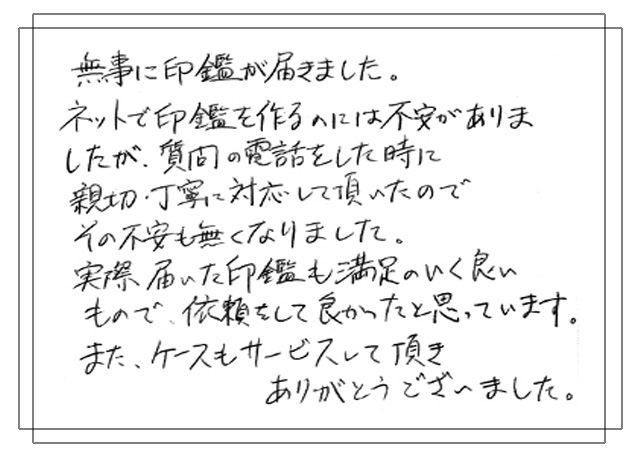 無事に印鑑が届きました。
ネットで印鑑を作るのには不安がありま
したが、質問の電話をした時に
親切・丁寧に対応して頂いたので
その不安も無くなりました。
実際届いた印鑑も満足のいく良い
もので、依頼をして良かったと思っています。
また、ケースもサービスして頂き
ありがとうございました。